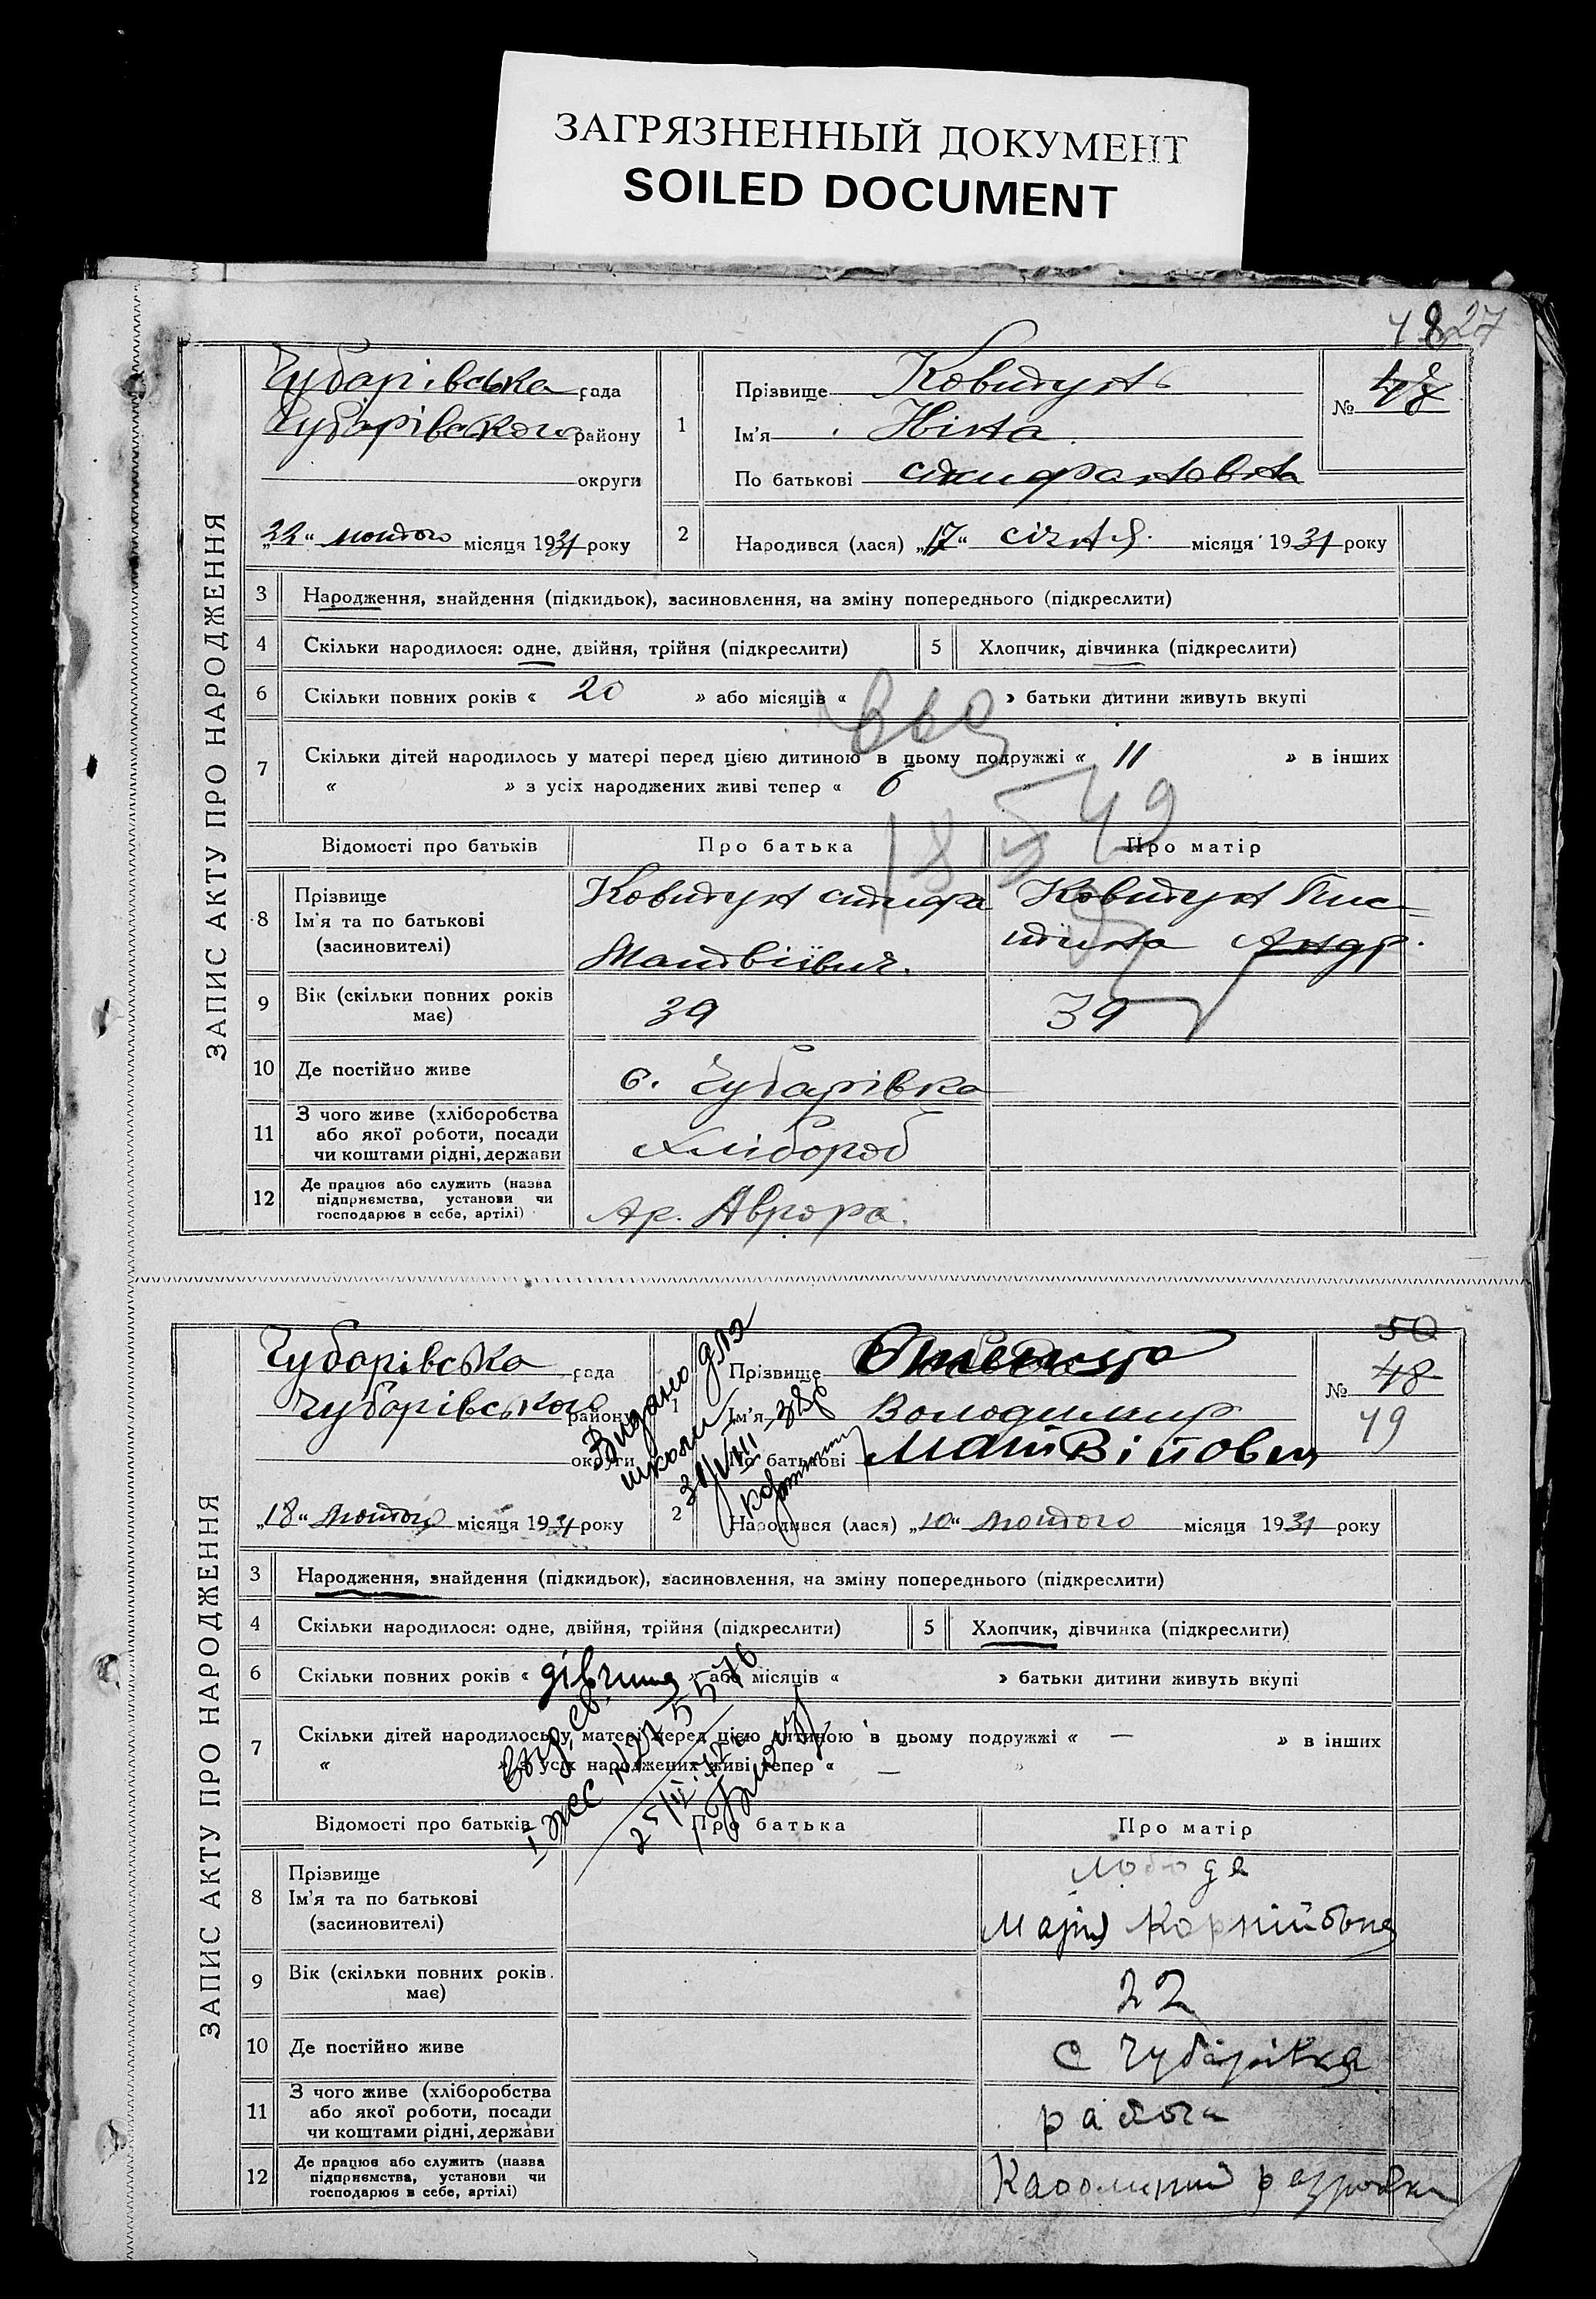 ЗАГРЯЗНЕННЫЙ ДОКУМЕНТ
SOILED DOCUMENT
27
ЗАПИС АКТУ ПРО НАРОДЖЕННЯ
Чубарівська рада
Чубарівського району
округи
„22“ лютого місяця 1931 року
1
Прізвище Ковтун
Ім'я Ніна
По батькові
№ 48
2
Народився (лася) „17“ січня місяця 1931 року
3 Народження, знайдення (підкидьок), засиновлення, на зміну попереднього (підкреслити)
4 Скільки народилося: одне, двійня, трійня (підкреслити) 5 Хлопчик, дівчинка (підкреслити)
6 Скільки повних років « 20 » або місяців « » батьки дитини живуть вкупі
7 Скільки дітей народилось у матері перед цією дитиною в цьому подружжі « 11 » в інших
« » з усіх народжених живі тепер « 6
Відомості про батьків Про батька Про матір
8 Прізвище
Ім'я та по батькові
(засиновителі)
Ковтун
Матвіївич.
Ковтун
Андр.
9 Вік (скільки повних років має) 39 39
10 Де постійно живе с. Чубарівка
11 З чого живе (хліборобства або якої роботи, посади чи коштами рідні, держави Хлібороб
12 Де працює або служить (назва підприємства, установи чи господарює в себе, артілі) Ар. Аврора.
ЗАПИС АКТУ ПРО НАРОДЖЕННЯ
Чубарівська рада
Чубарівського району
округи
„18“ лютого місяця 1931 року
Видано для
школи
1
Прізвище
Ім'я Володимир
По батькові Матвійович
50
№ 48
49
2
Народився (лася) „10“ лютого місяця 1931 року
3 Народження, знайдення (підкидьок), засиновлення, на зміну попереднього (підкреслити)
4 Скільки народилося: одне, двійня, трійня (підкреслити) 5 Хлопчик, дівчинка (підкреслити)
6 Скільки повних років « дівчина » або місяців « » батьки дитини живуть вкупі
7 Скільки дітей народилось у матері перед цією дитиною в цьому подружжі « — » в інших
« » з усіх народжених живі тепер « —
Відомості про батьків Про батька Про матір
8 Прізвище
Ім'я та по батькові
(засиновителі)
Лобода
Марія Корнійовна
9 Вік (скільки повних років має) 22
10 Де постійно живе с Чубарівка
11 З чого живе (хліборобства або якої роботи, посади чи коштами рідні, держави
12 Де працює або служить (назва підприємства, установи чи господарює в себе, артілі)